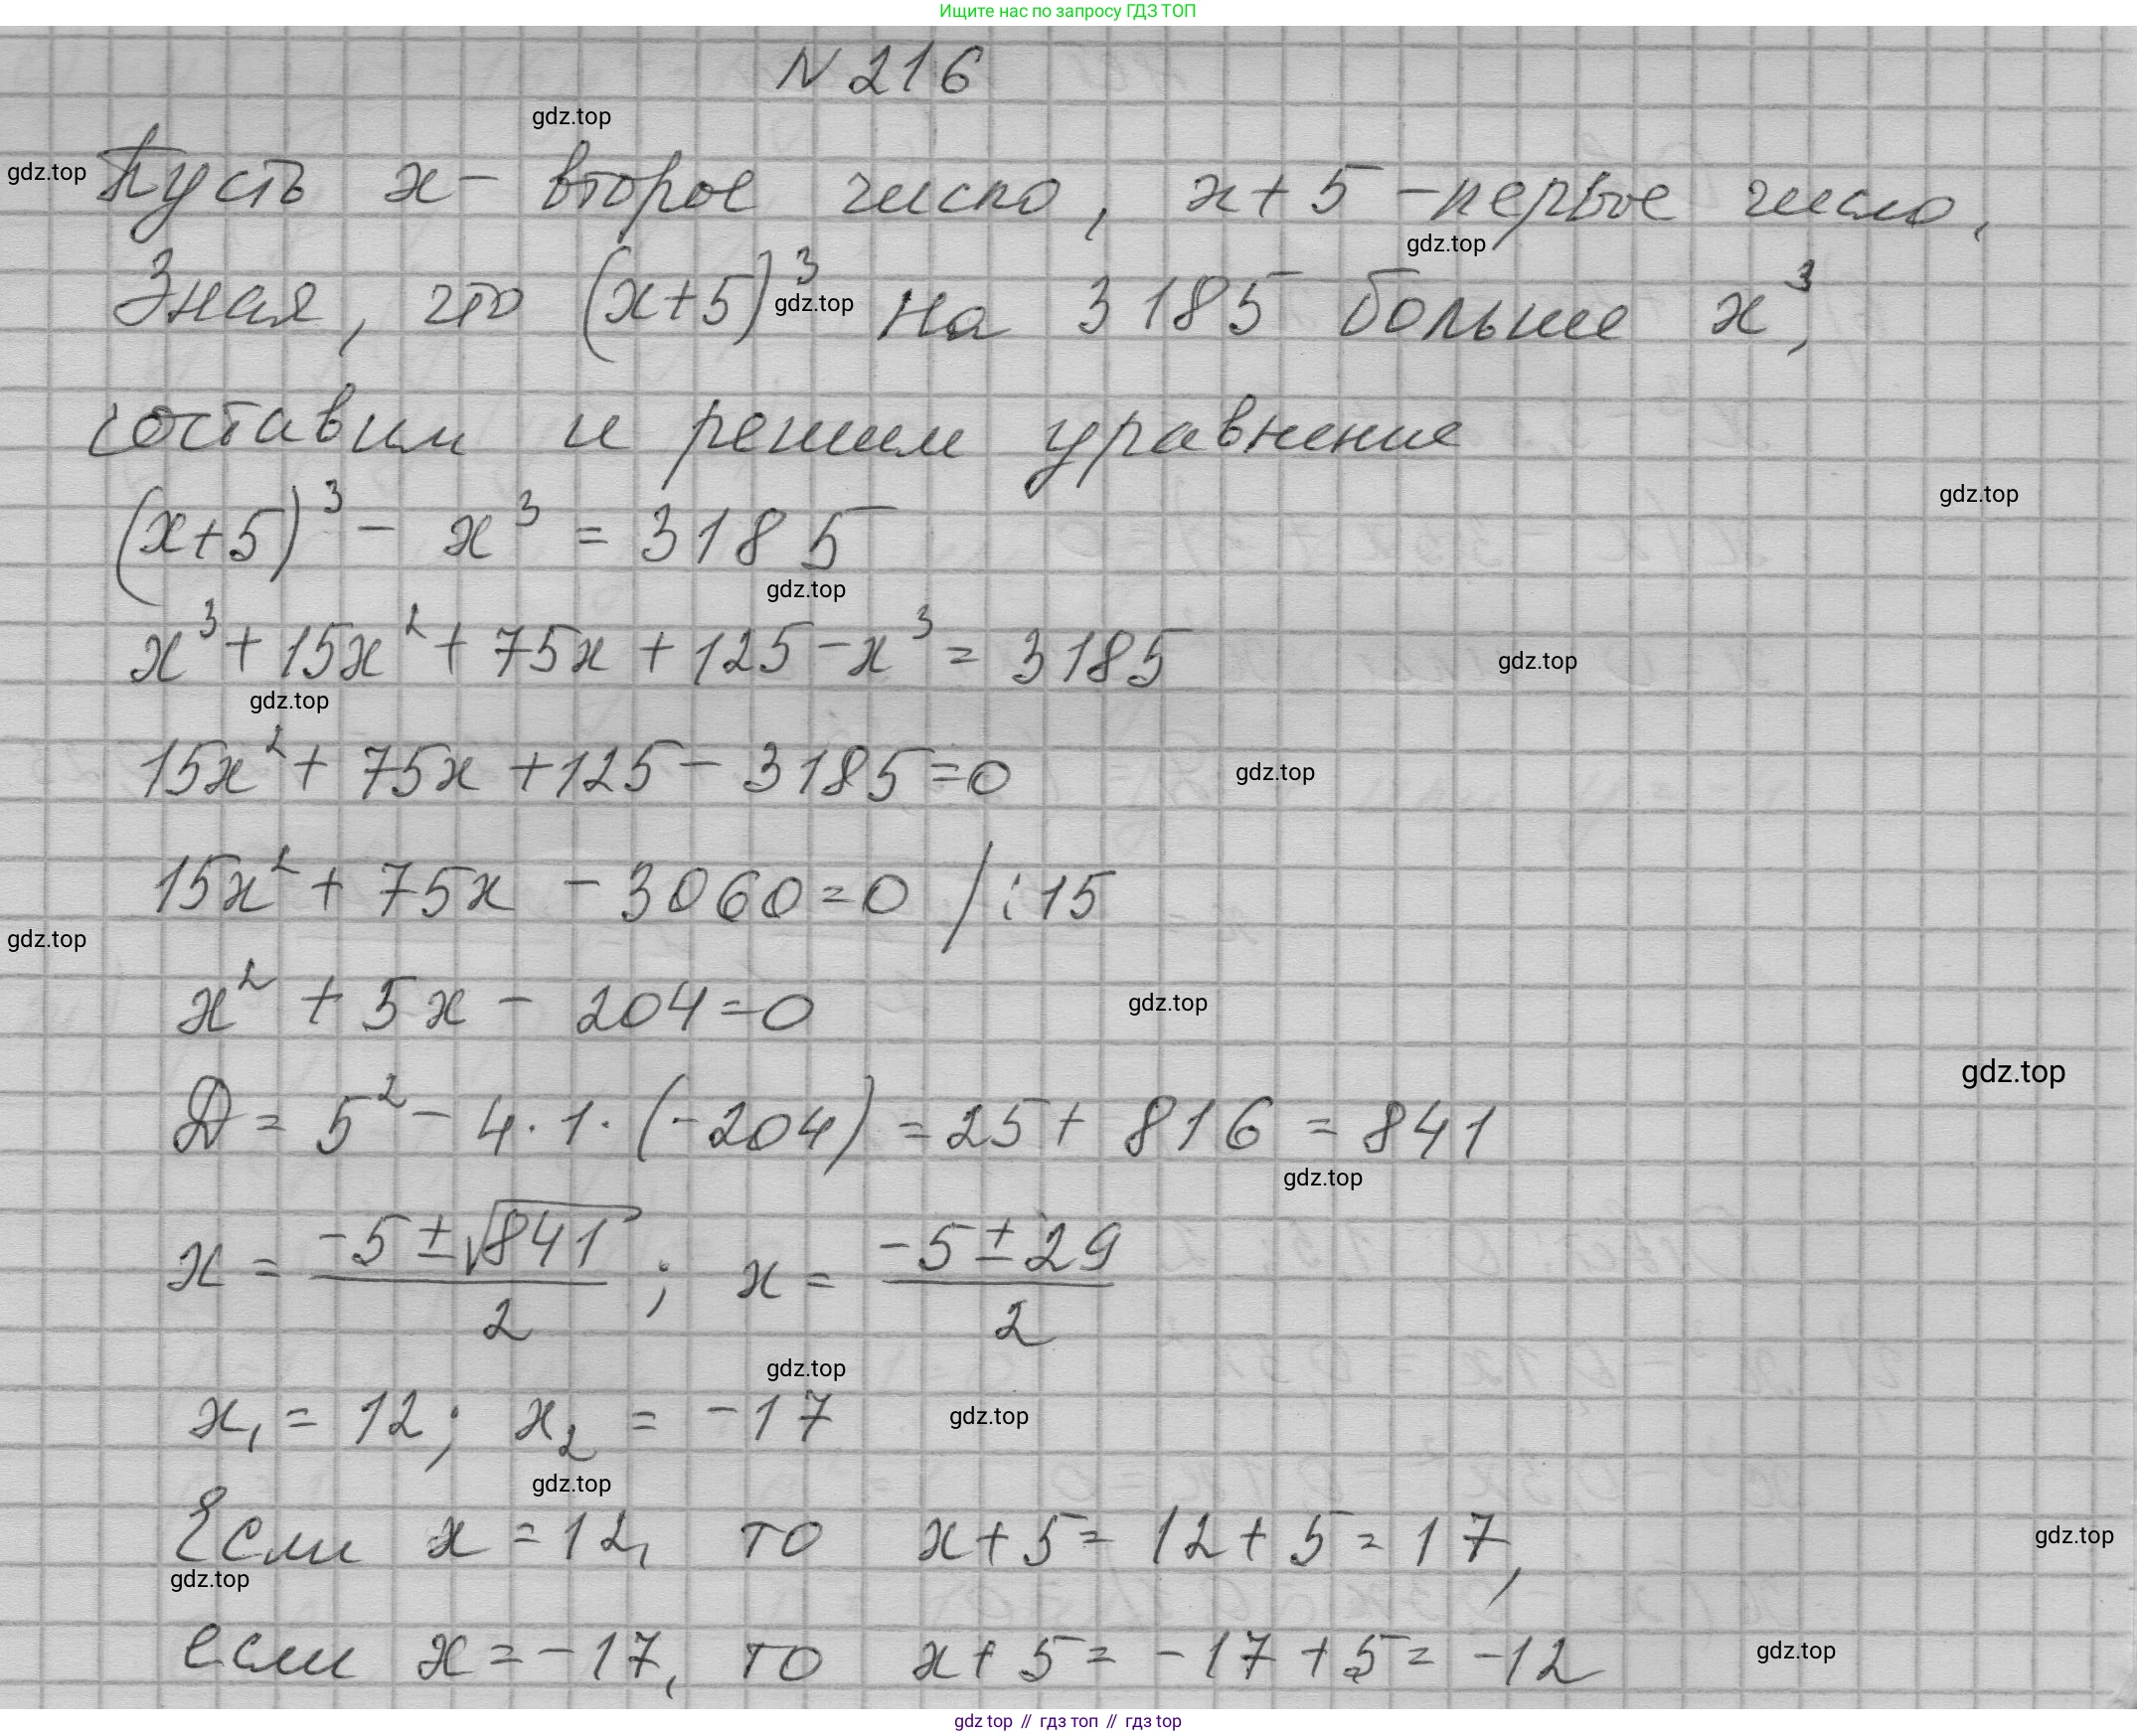 Ищите нас по запросу ГДЗ ТОП
N 216
gdz.top
gdz.top
Пусть x - второе число, x + 5 - первое число.
gdz.top
Зная, что (x+5)³ на 3185 больше x³,
gdz.top
составим и решим уравнение
gdz.top
(x+5)³ - x³ = 3185
gdz.top
x³ + 15x² + 75x + 125 - x³ = 3185
gdz.top
gdz.top
15x² + 75x + 125 - 3185 = 0
gdz.top
15x² + 75x - 3060 = 0 /:15
gdz.top
x² + 5x - 204 = 0
gdz.top
gdz.top
D = 5² - 4 · 1 · (-204) = 25 + 816 = 841
gdz.top
x = (-5 ± √841)/2 ; x = (-5 ± 29)/2
gdz.top
x₁ = 12; x₂ = -17
gdz.top
gdz.top
Если x = 12, то x + 5 = 12 + 5 = 17,
gdz.top
gdz.top
если x = -17, то x + 5 = -17 + 5 = -12
gdz.top
gdz top // гдз топ // гдз top